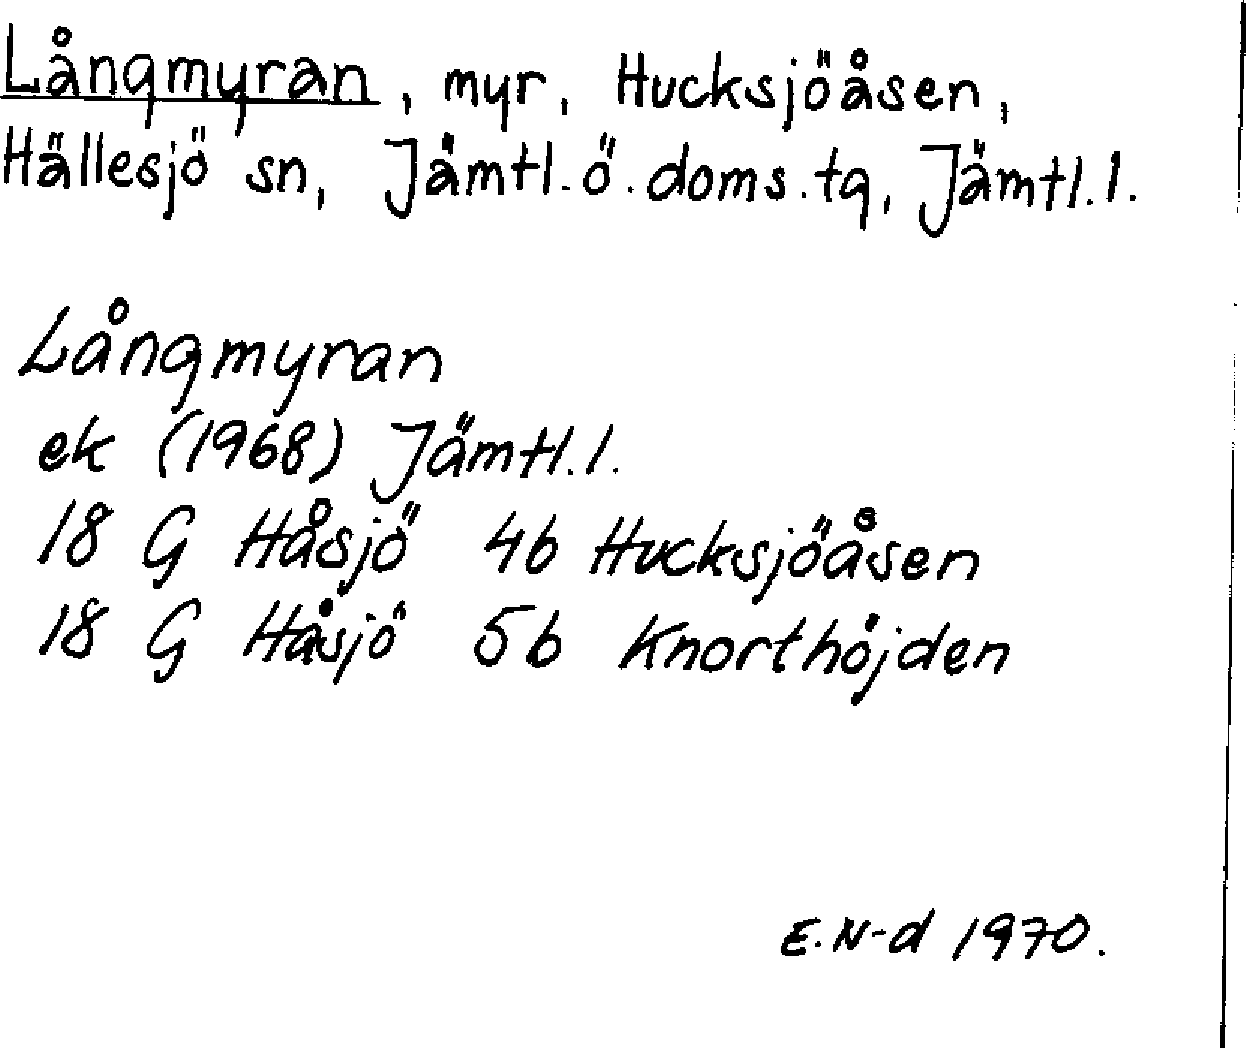 Långmyran, myr, Hucksjöåsen,
Hällesjö sn, Jämtl.ö.doms.tg, Jämtl.l.
Långmyran
ek (1968) Jämtl.l.
18 G Håsjö 4b Hucksjöåsen
18 G Håsjö 5b Knorthöjden
E.N-d 1970.